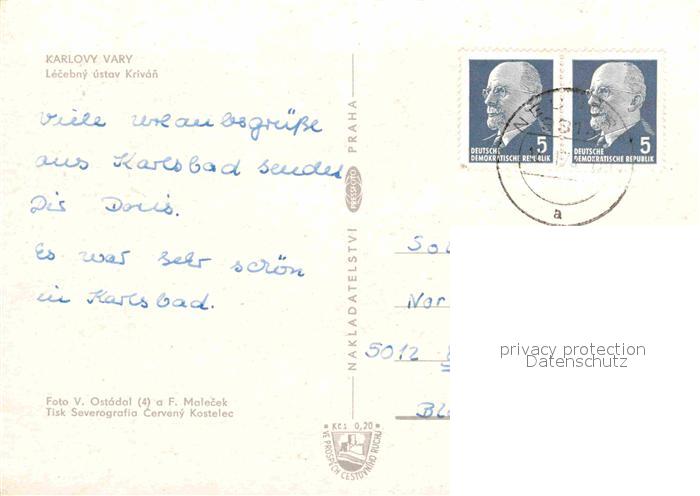 KARLOVY VARY
Léčebný ústav Kriváň
Viele Urlaubsgrüße
aus Karlsbad sendet
Dir Doris.
Es war sehr schön
in Karlsbad.
Foto V. Ostádal (4) a F. Maleček
Tisk Severografia Červený Kostelec
NAKLADATELSTVÍ PRESSFOTO PRAHA
Kčs 0,20
VE PROSPĚCH CESTOVNÍHO RUCHU
5
DEUTSCHE
DEMOKRATISCHE REPUBLIK
5
DEUTSCHE
DEMOKRATISCHE REPUBLIK
a
Nor
5012
privacy protection
Datenschutz